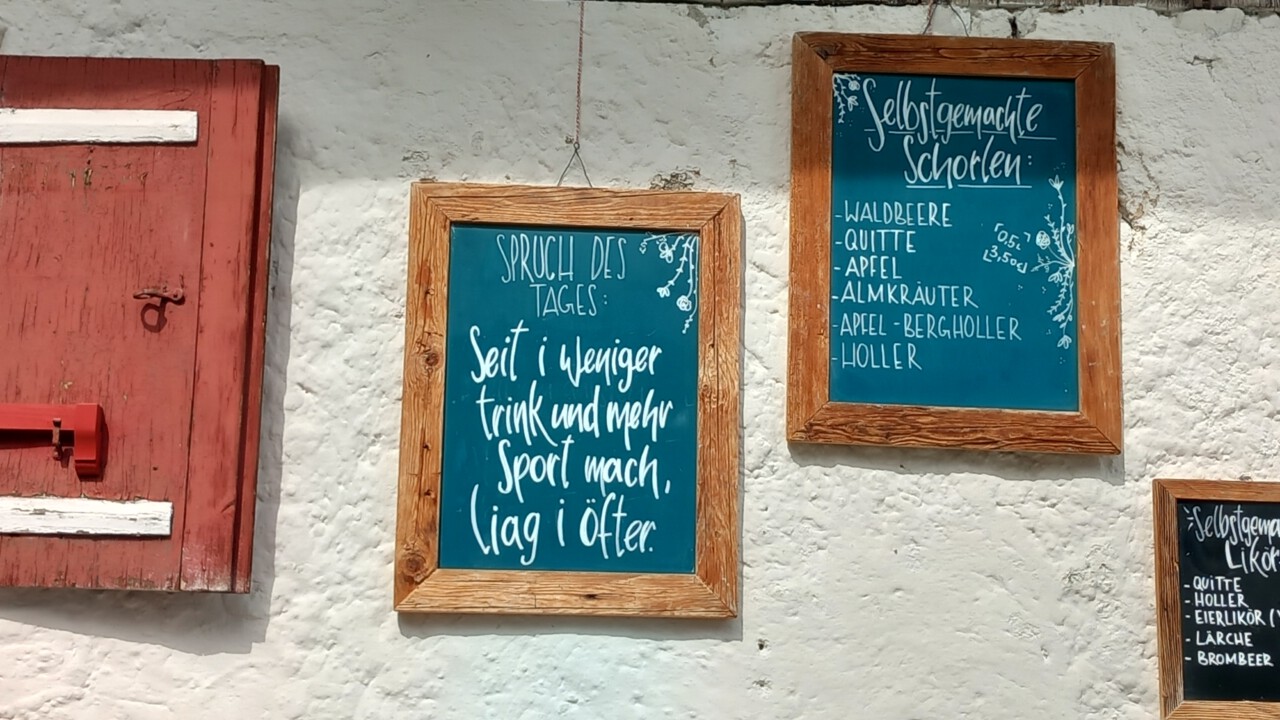 SPRUCH DES
TAGES:
Seit i weniger
trink und mehr
Sport mach,
liag i öfter.
Selbstgemachte
Schorlen:
-WALDBEERE
-QUITTE
-APFEL
-ALMKRÄUTER
-APFEL-BERGHOLLER
-HOLLER
0,5L
3,50€
Selbstgema
Likör
- QUITTE
- HOLLER
- EIERLIKÖR (
- LÄRCHE
- BROMBEER